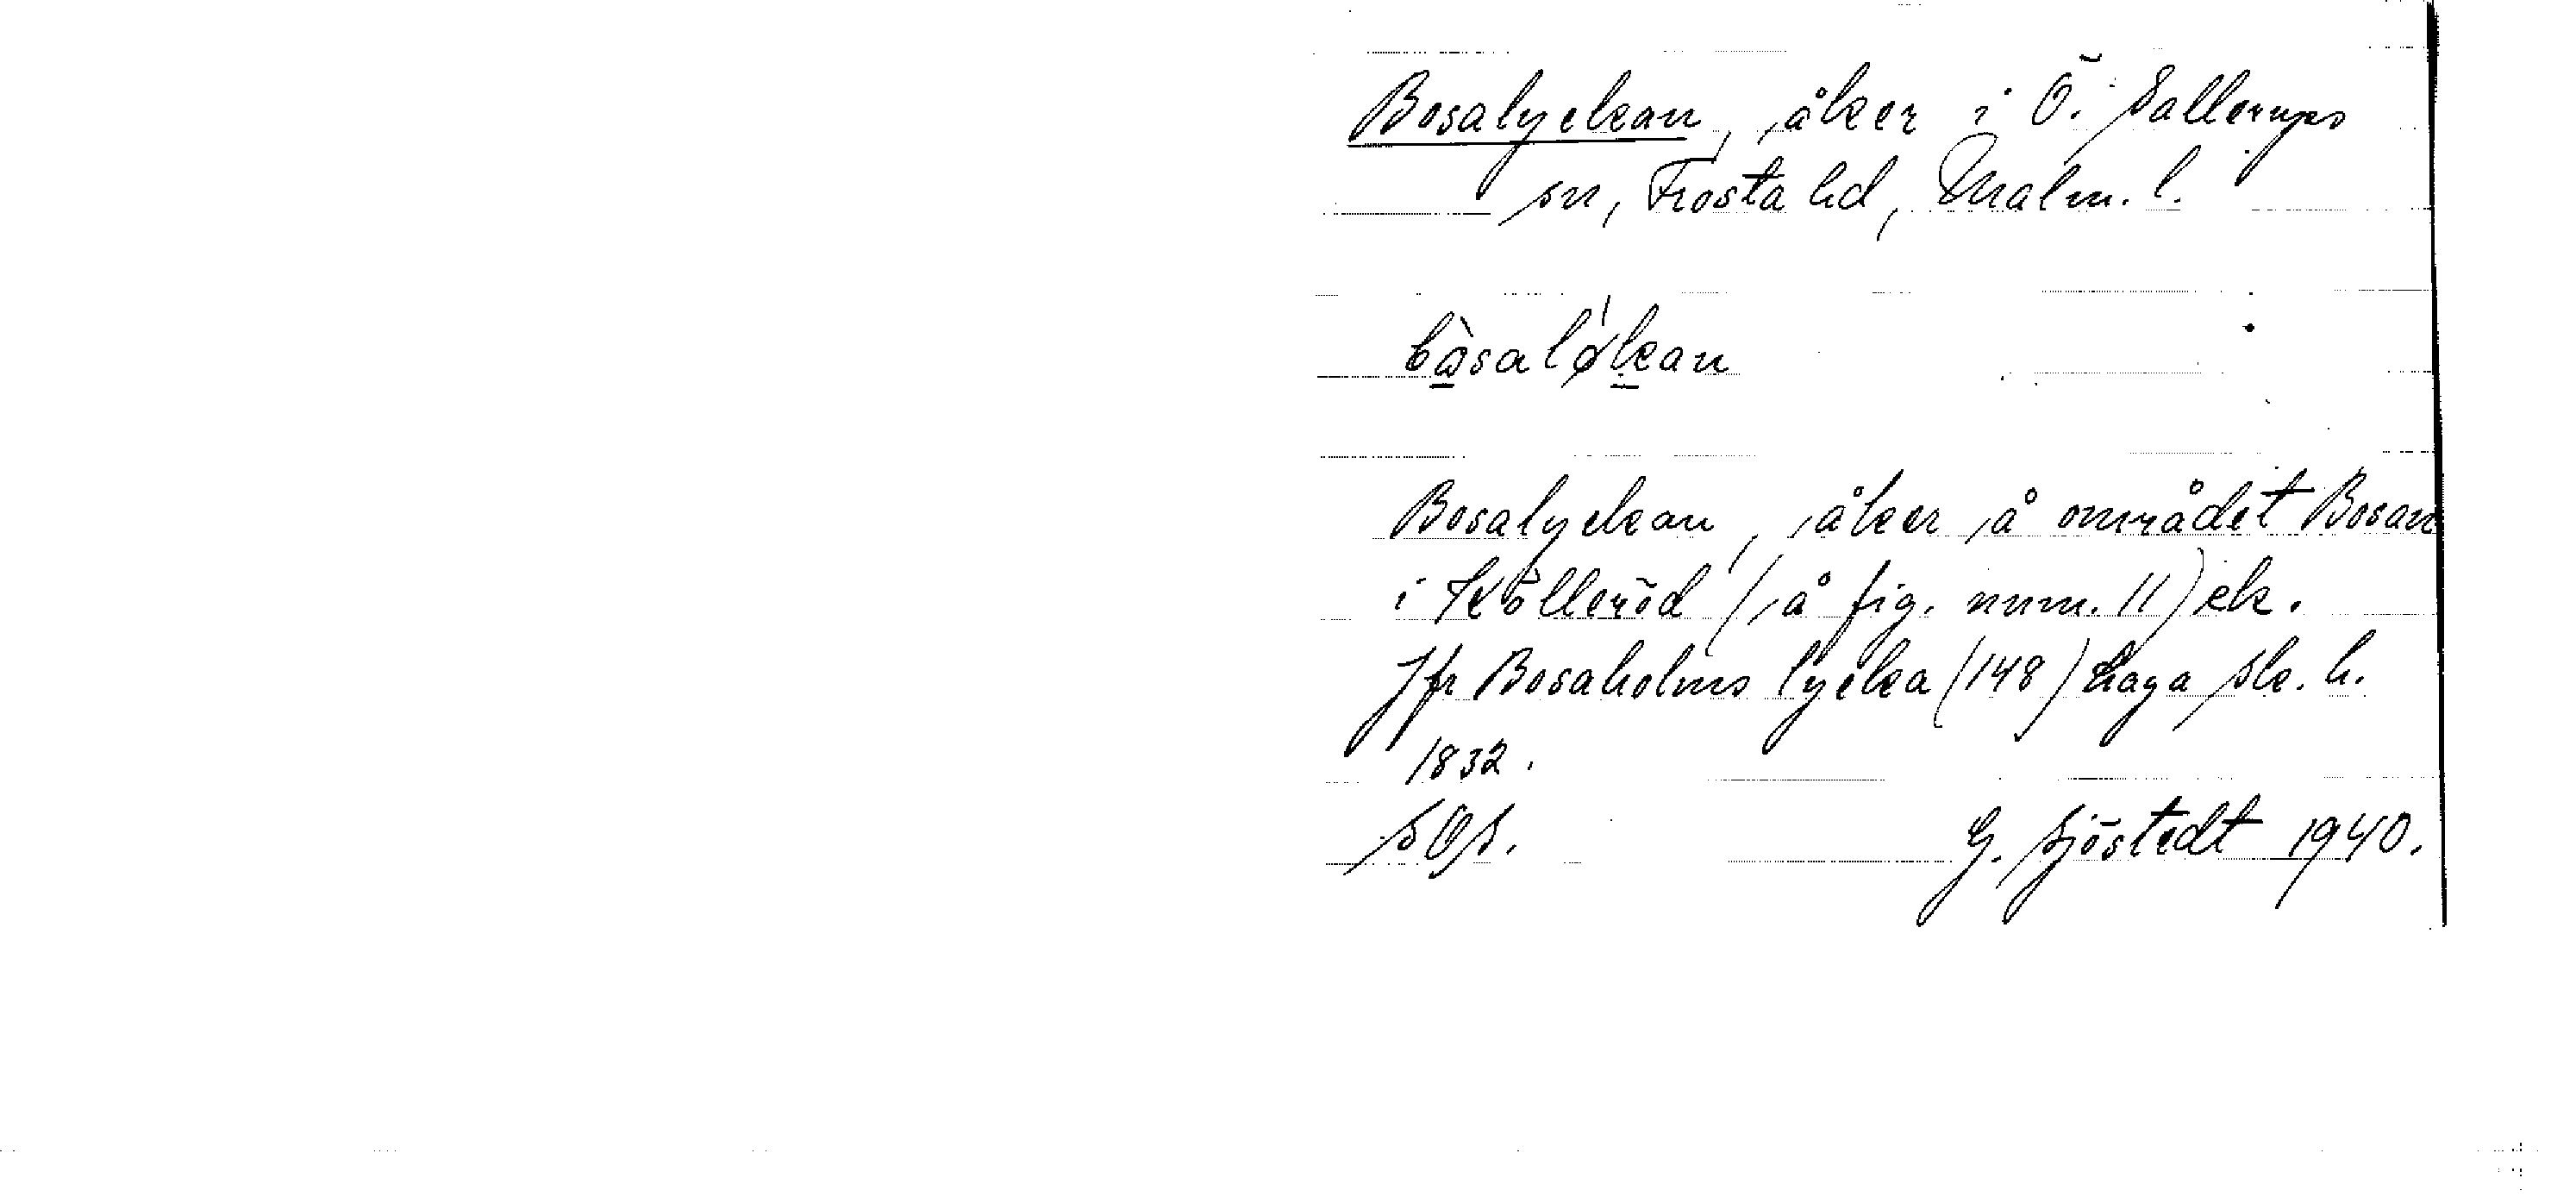 Bosalyckan, åker i Ö. Sallerups
sn, Frosta hd, Malm. l.
bàsaløkan
Bosalyckan, åker å området Bosan
i Kölleröd (å fig. num. 11) ek.
Jfr Bosaholms lycka (148) Laga sk. h.
1832.
SOS.
G. Sjöstedt 1940.